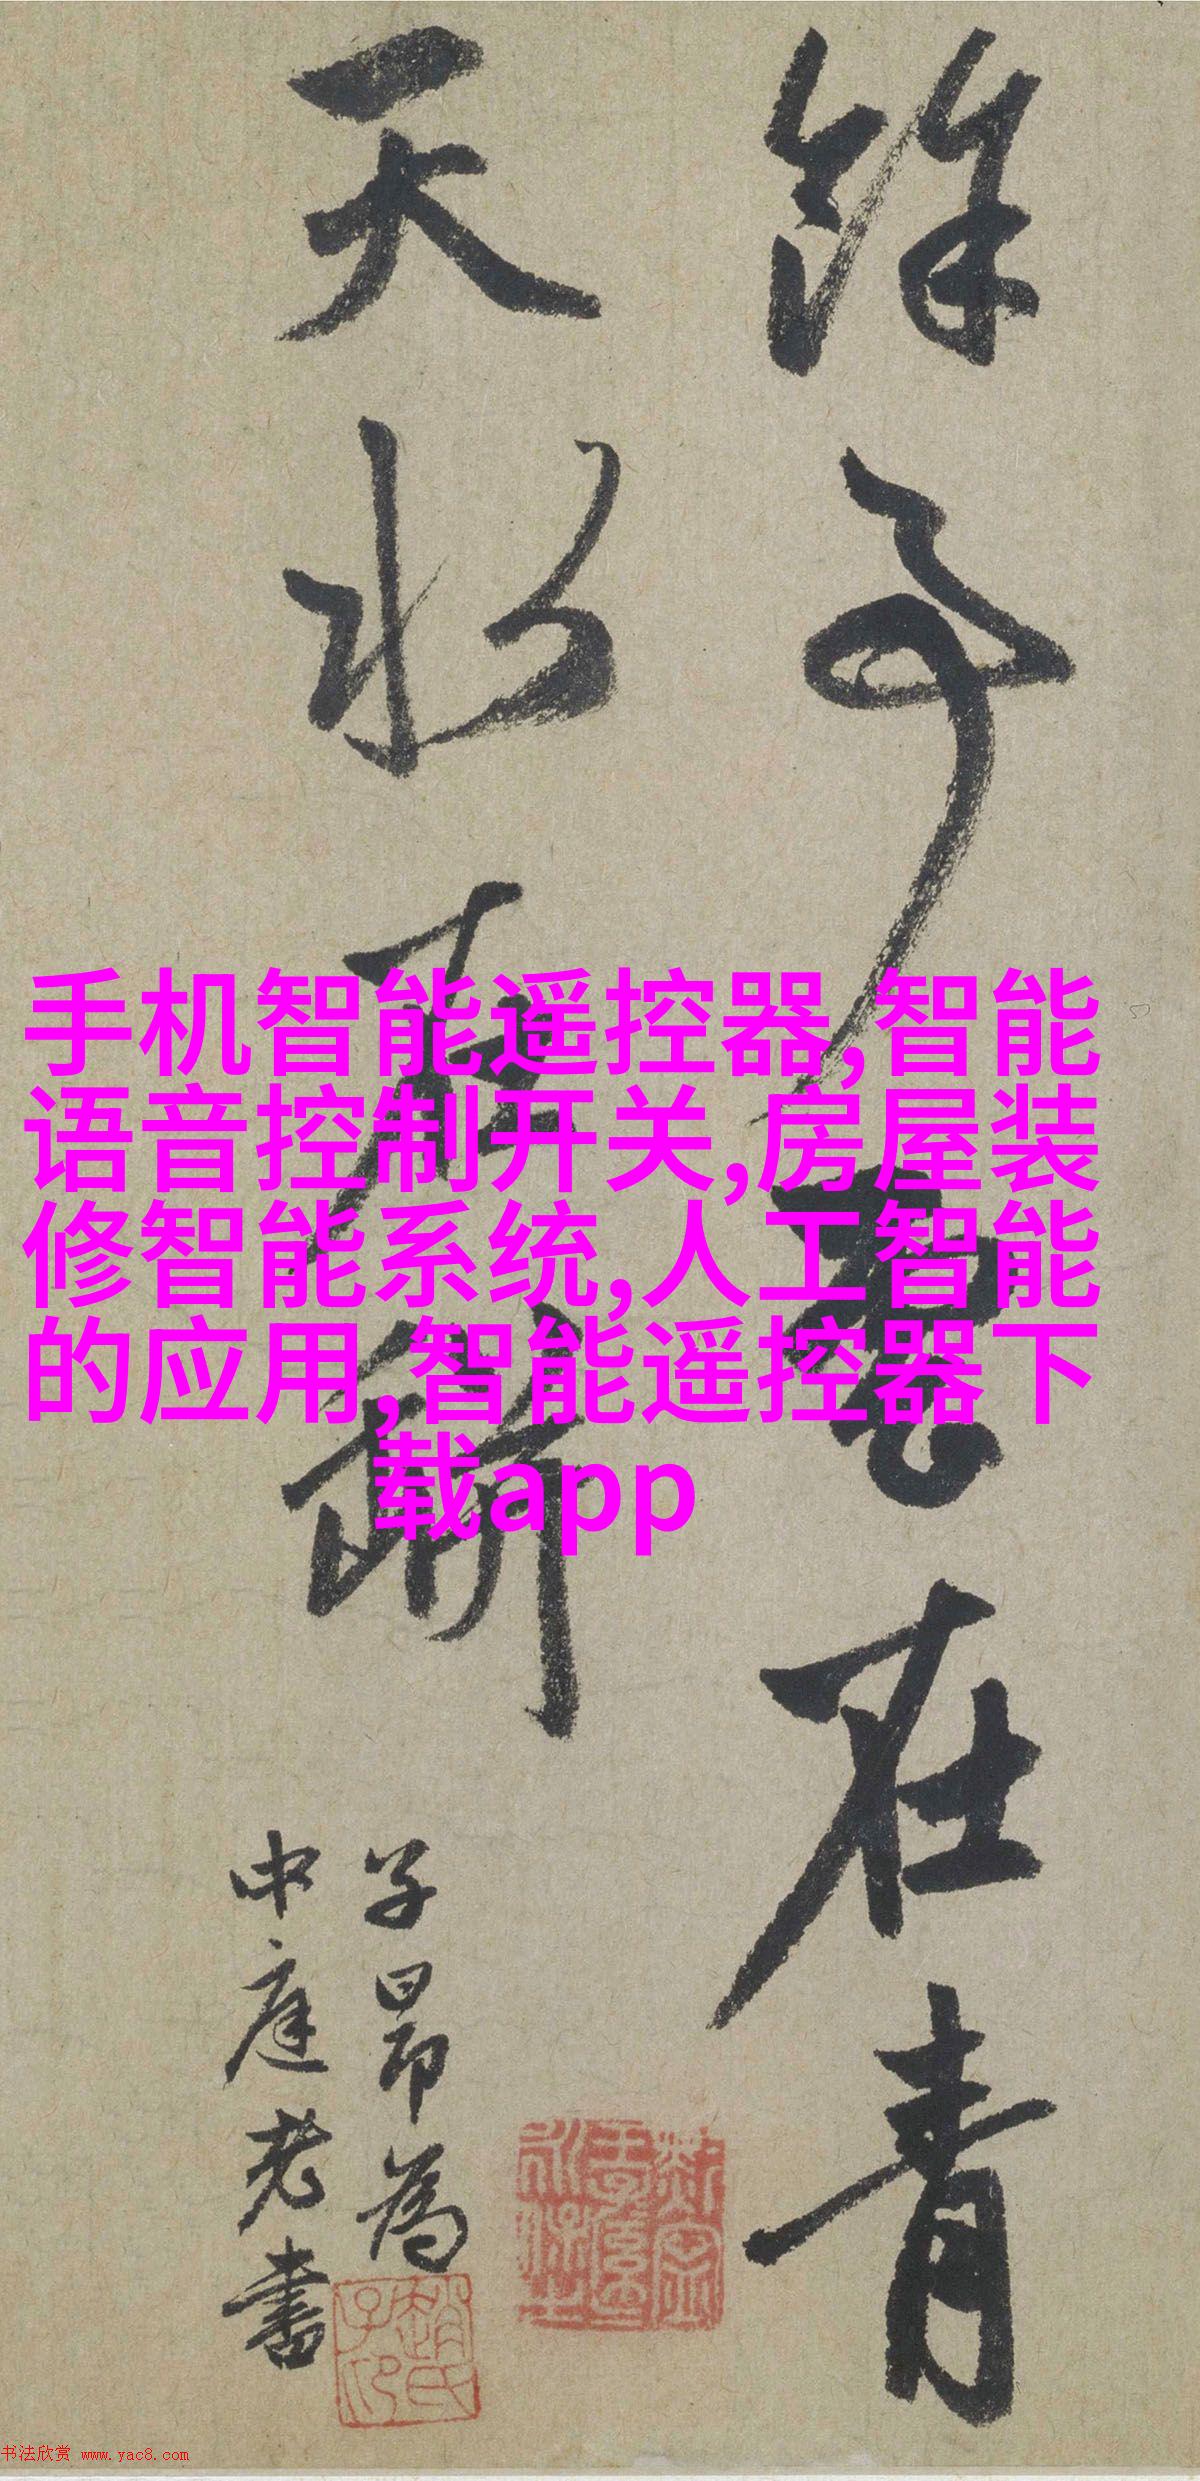 餘 在青
天
子昂為
中庭老書
趙氏子印
手机智能遥控器,智能
语音控制开关,房屋装
修智能系统,人工智能
的应用,智能遥控器下
载app
书法欣赏 www.yac8.com